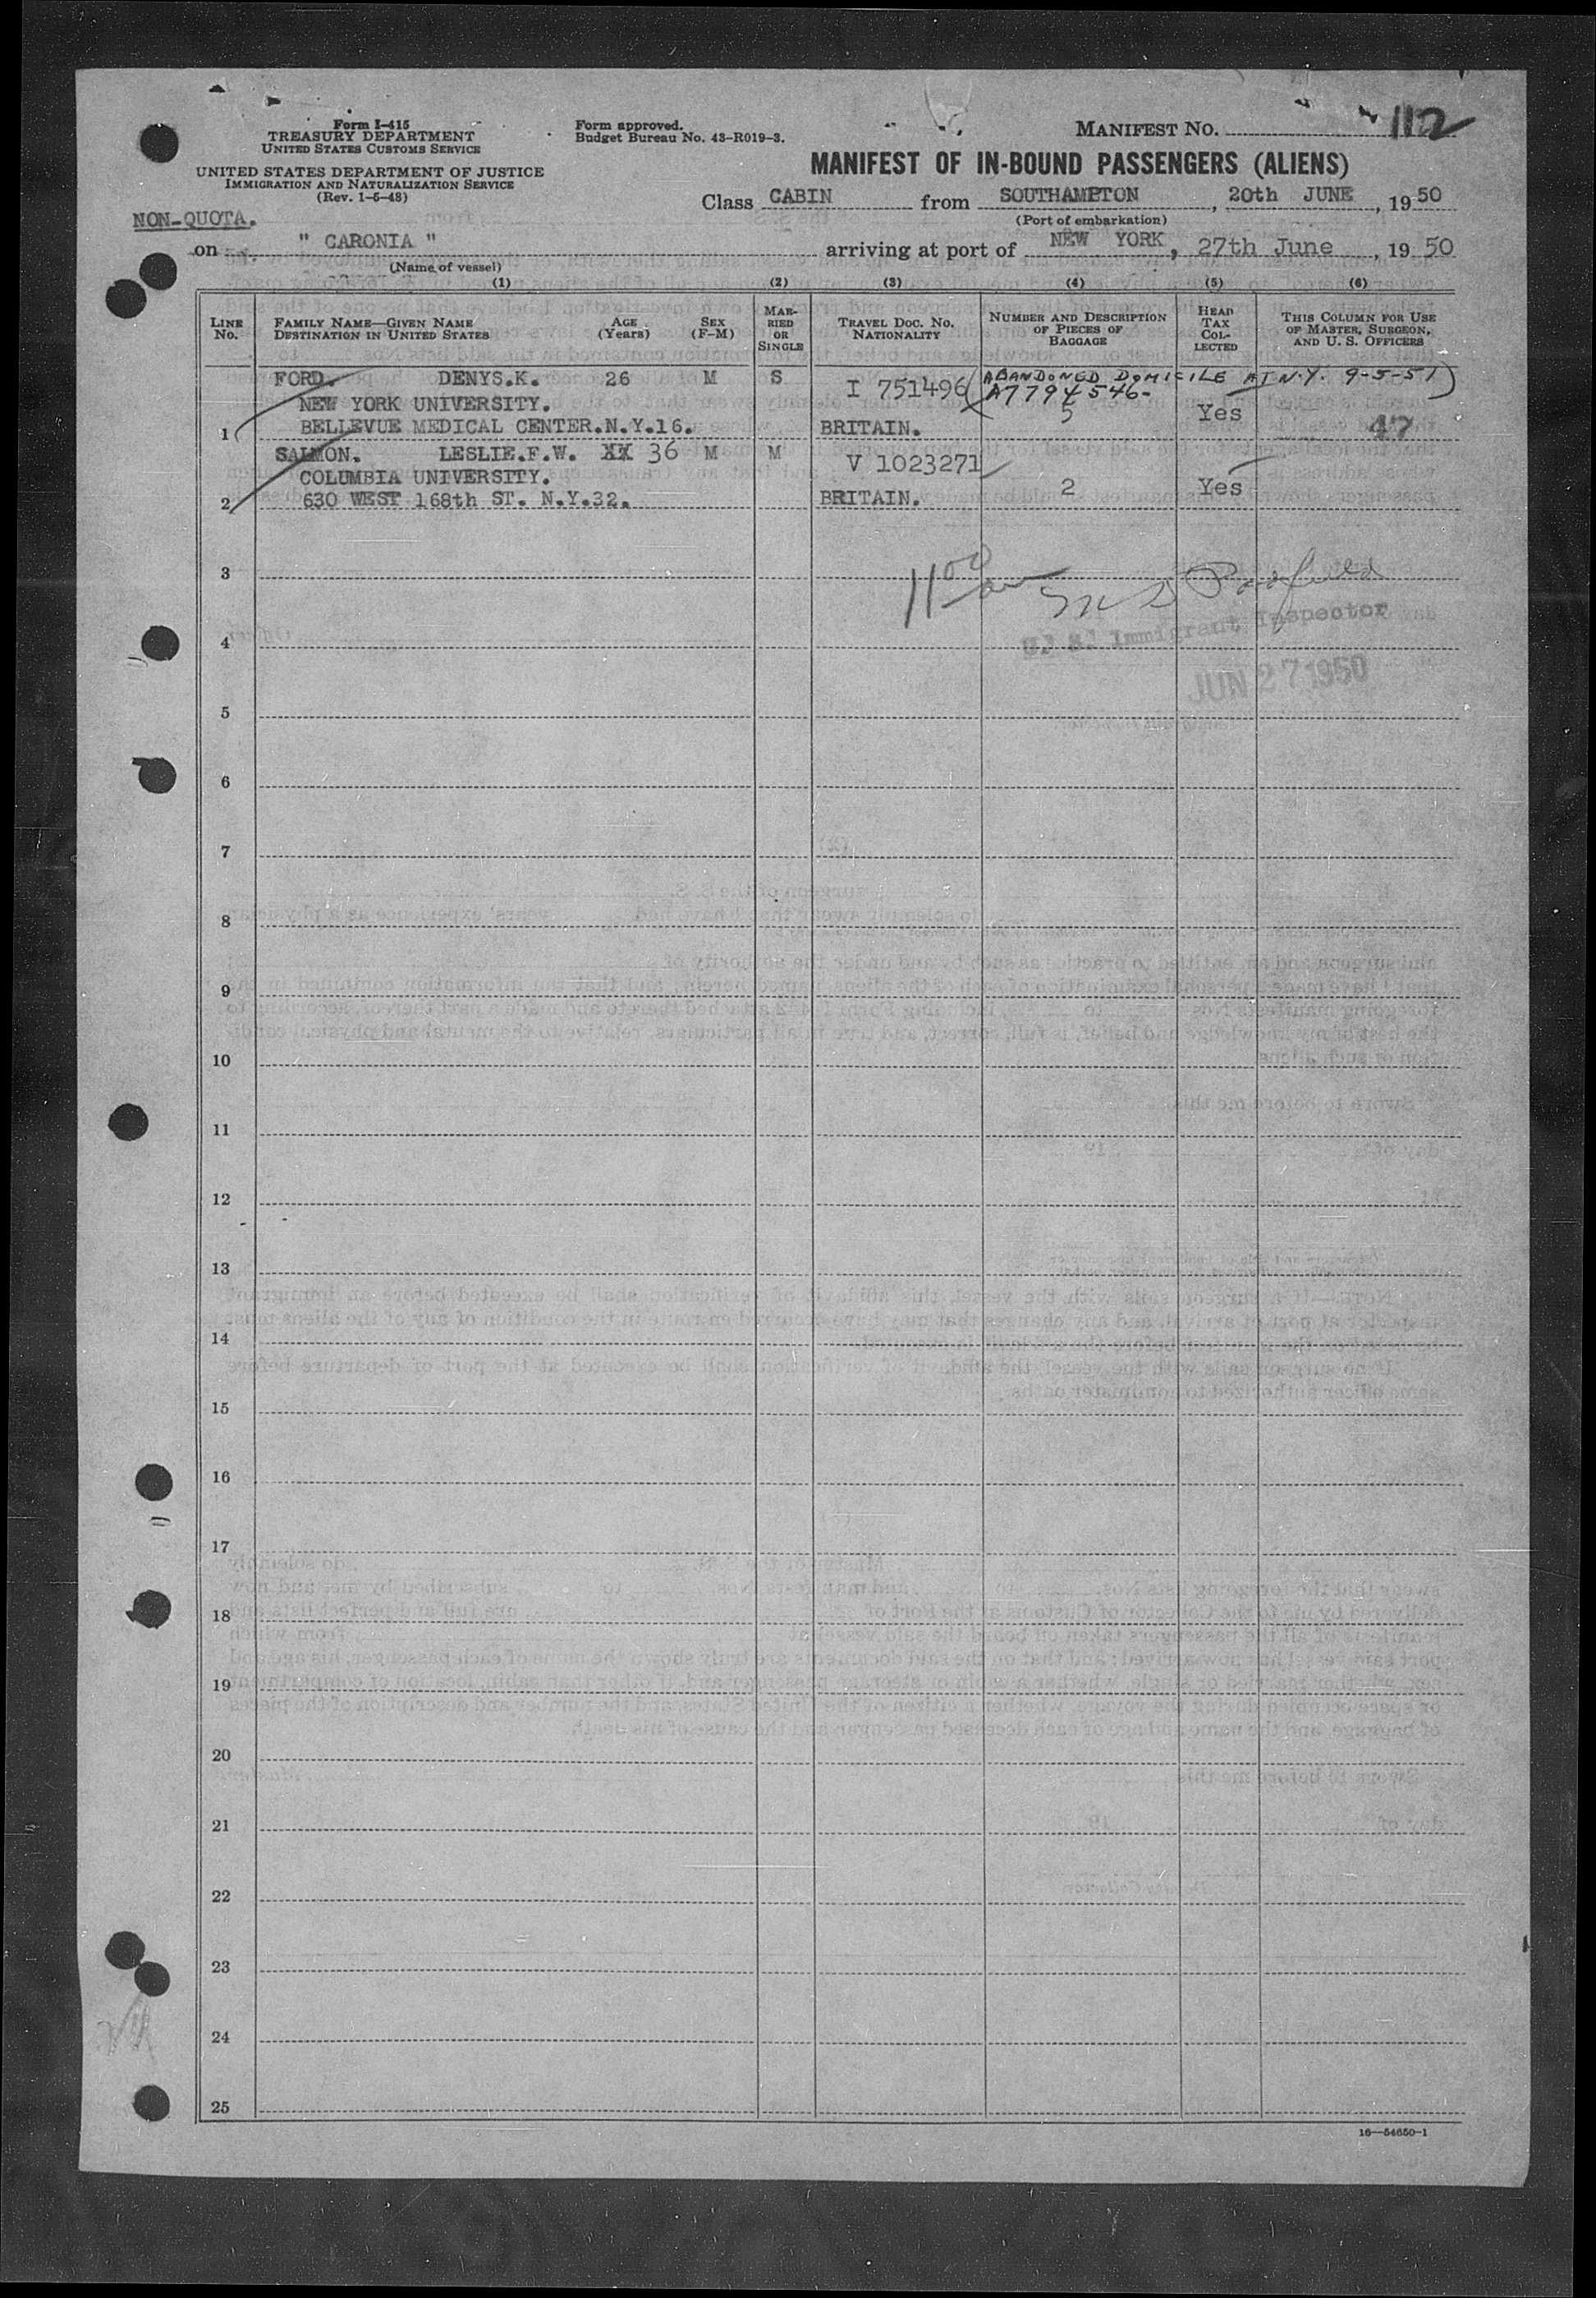 Form I-415
TREASURY DEPARTMENT
UNITED STATES CUSTOMS SERVICE
UNITED STATES DEPARTMENT OF JUSTICE
IMMIGRATION AND NATURALIZATION SERVICE
(Rev. 1-6-48)
Form approved.
Budget Bureau No. 43-R019-3.
MANIFEST NO. 112
MANIFEST OF IN-BOUND PASSENGERS (ALIENS)
Class CABIN from SOUTHAMPTON, 20th JUNE, 1950
(Port of embarkation)
NON-QUOTA.
on " CARONIA " arriving at port of NEW YORK, 27th June, 1950
(Name of vessel)
(1) (2) (3) (4) (5) (6)
LINE No. FAMILY NAME—GIVEN NAME DESTINATION IN UNITED STATES AGE (Years) SEX (F-M) MARRIED OR SINGLE TRAVEL DOC. NO. NATIONALITY NUMBER AND DESCRIPTION OF PIECES OF BAGGAGE HEAD TAX COLLECTED THIS COLUMN FOR USE OF MASTER, SURGEON, AND U. S. OFFICERS
FORD. DENYS.K. 26 M S I 751496 (ABANDONED DOMICILE AT N.Y. 9-5-51)
NEW YORK UNIVERSITY. A7794546- 5 Yes
1 BELLEVUE MEDICAL CENTER.N.Y.16. BRITAIN. 47
SALMON. LESLIE.F.W. XX 36 M M V 1023271
COLUMBIA UNIVERSITY. 2 Yes
2 630 WEST 168th ST. N.Y.32. BRITAIN.
3
11 00 am
U. S. Immigrant Inspector
4
JUN 27 1950
5
6
7
8
9
10
11
12
13
14
15
16
17
18
19
20
21
22
23
24
25
16—54650-1